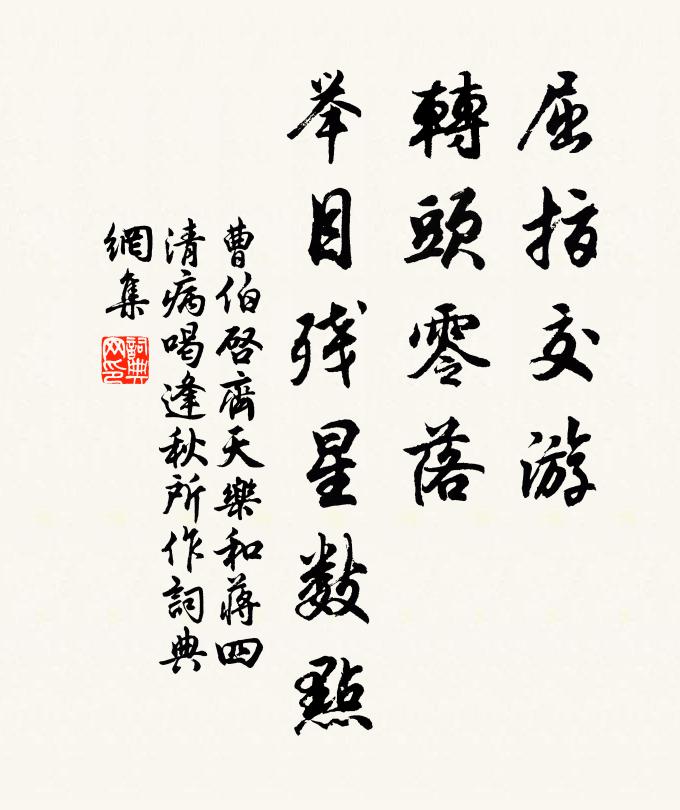 屈指交游
轉頭零落
举目残星數點
曹伯啓齊天樂和蔣四
清病喝逢秋所作詞典
網集
詞典
网印